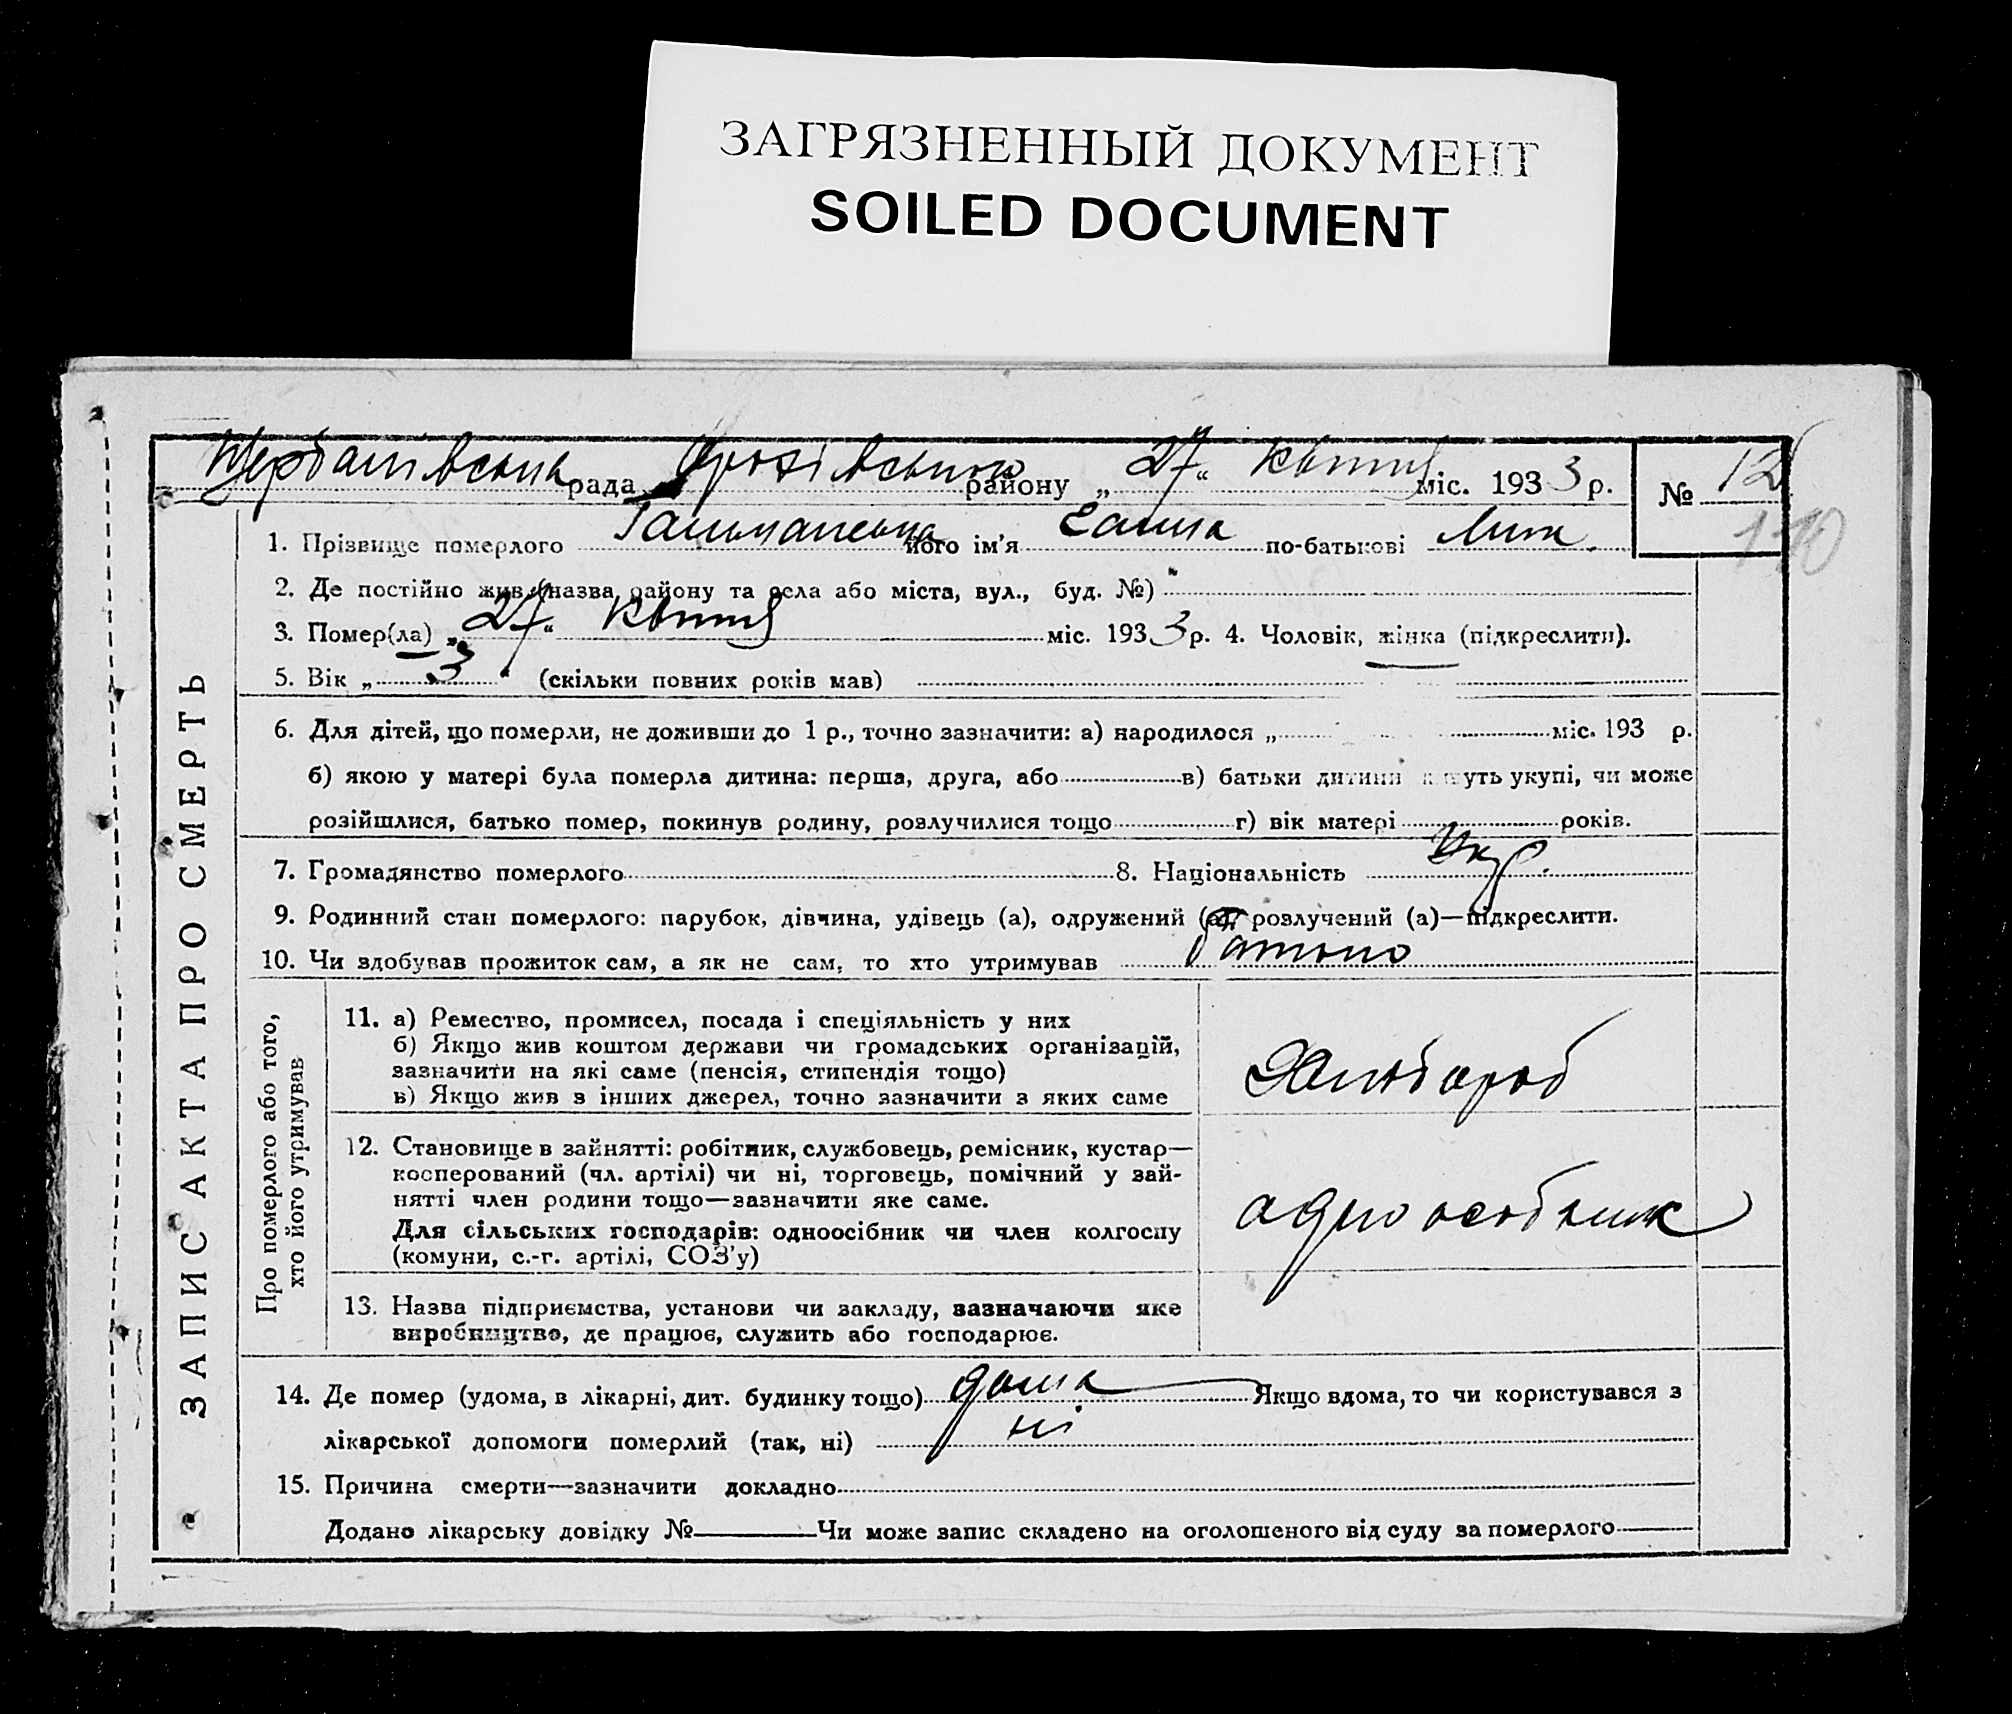 ЗАГРЯЗНЕННЫЙ ДОКУМЕНТ
SOILED DOCUMENT
рада району „27“ квітня міс. 1933 р. № 12
110
1. Прізвище померлого його ім'я по-батькові
2. Де постійно жив (назва району та села або міста, вул., буд. №)
3. Помер(ла) „27“ квітня міс. 1933 р. 4. Чоловік, жінка (підкреслити).
5. Вік „3“ (скільки повних років мав)
6. Для дітей, що померли, не доживши до 1 р., точно зазначити: а) народилося „ міс. 193 р.
б) якою у матері була померла дитина: перша, друга, або в) батьки дитини живуть укупі, чи може
розійшлися, батько помер, покинув родину, розлучилися тощо г) вік матері років.
7. Громадянство померлого 8. Національність Укр.
9. Родинний стан померлого: парубок, дівчина, удівець (а), одружений (а), розлучений (а)—підкреслити.
10. Чи здобував прожиток сам, а як не сам, то хто утримував батько
ЗАПИС АКТА ПРО СМЕРТЬ
Про померлого або того,
хто його утримував
11. а) Ремество, промисел, посада і спеціяльність у них
б) Якщо жив коштом держави чи громадських організацій,
зазначити на які саме (пенсія, стипендія тощо)
в) Якщо жив з інших джерел, точно зазначити з яких саме
Хлібороб
12. Становище в зайнятті: робітник, службовець, ремісник, кустар—
косперований (чл. артілі) чи ні, торговець, помічний у зай-
нятті член родини тощо—зазначити яке саме.
Для сільських господарів: одноосібник чи член колгоспу
(комуни, с.-г. артілі, СОЗ'у)
одноособник
13. Назва підприємства, установи чи закладу, зазначаючи яке
виробництво, де працює, служить або господарює.
14. Де помер (удома, в лікарні, дит. будинку тощо) дома Якщо вдома, то чи користувався з
лікарської допомоги померлий (так, ні) ні
15. Причина смерти—зазначити докладно
Додано лікарську довідку № Чи може запис складено на оголошеного від суду за померлого